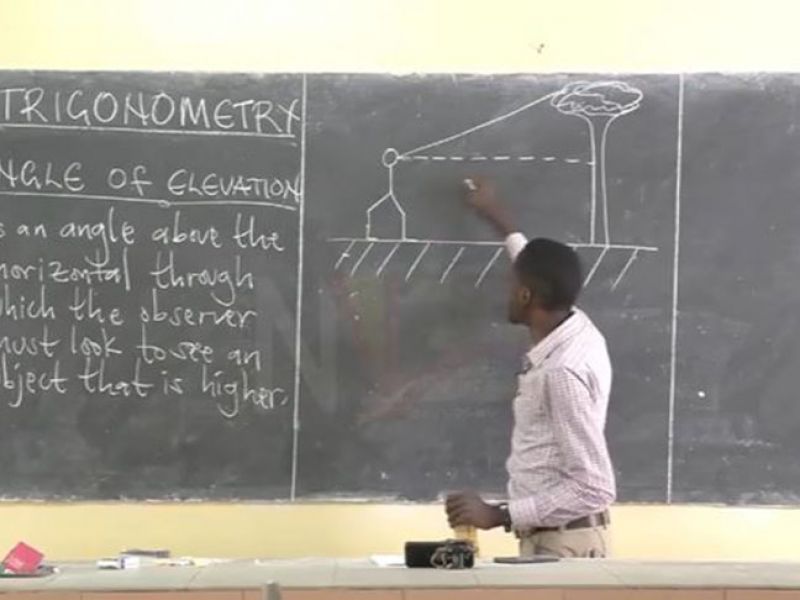 TRIGONOMETRY
NGLE OF ELEVATION
s an angle above the
horizontal through
which the observer
must look to see an
object that is higher.